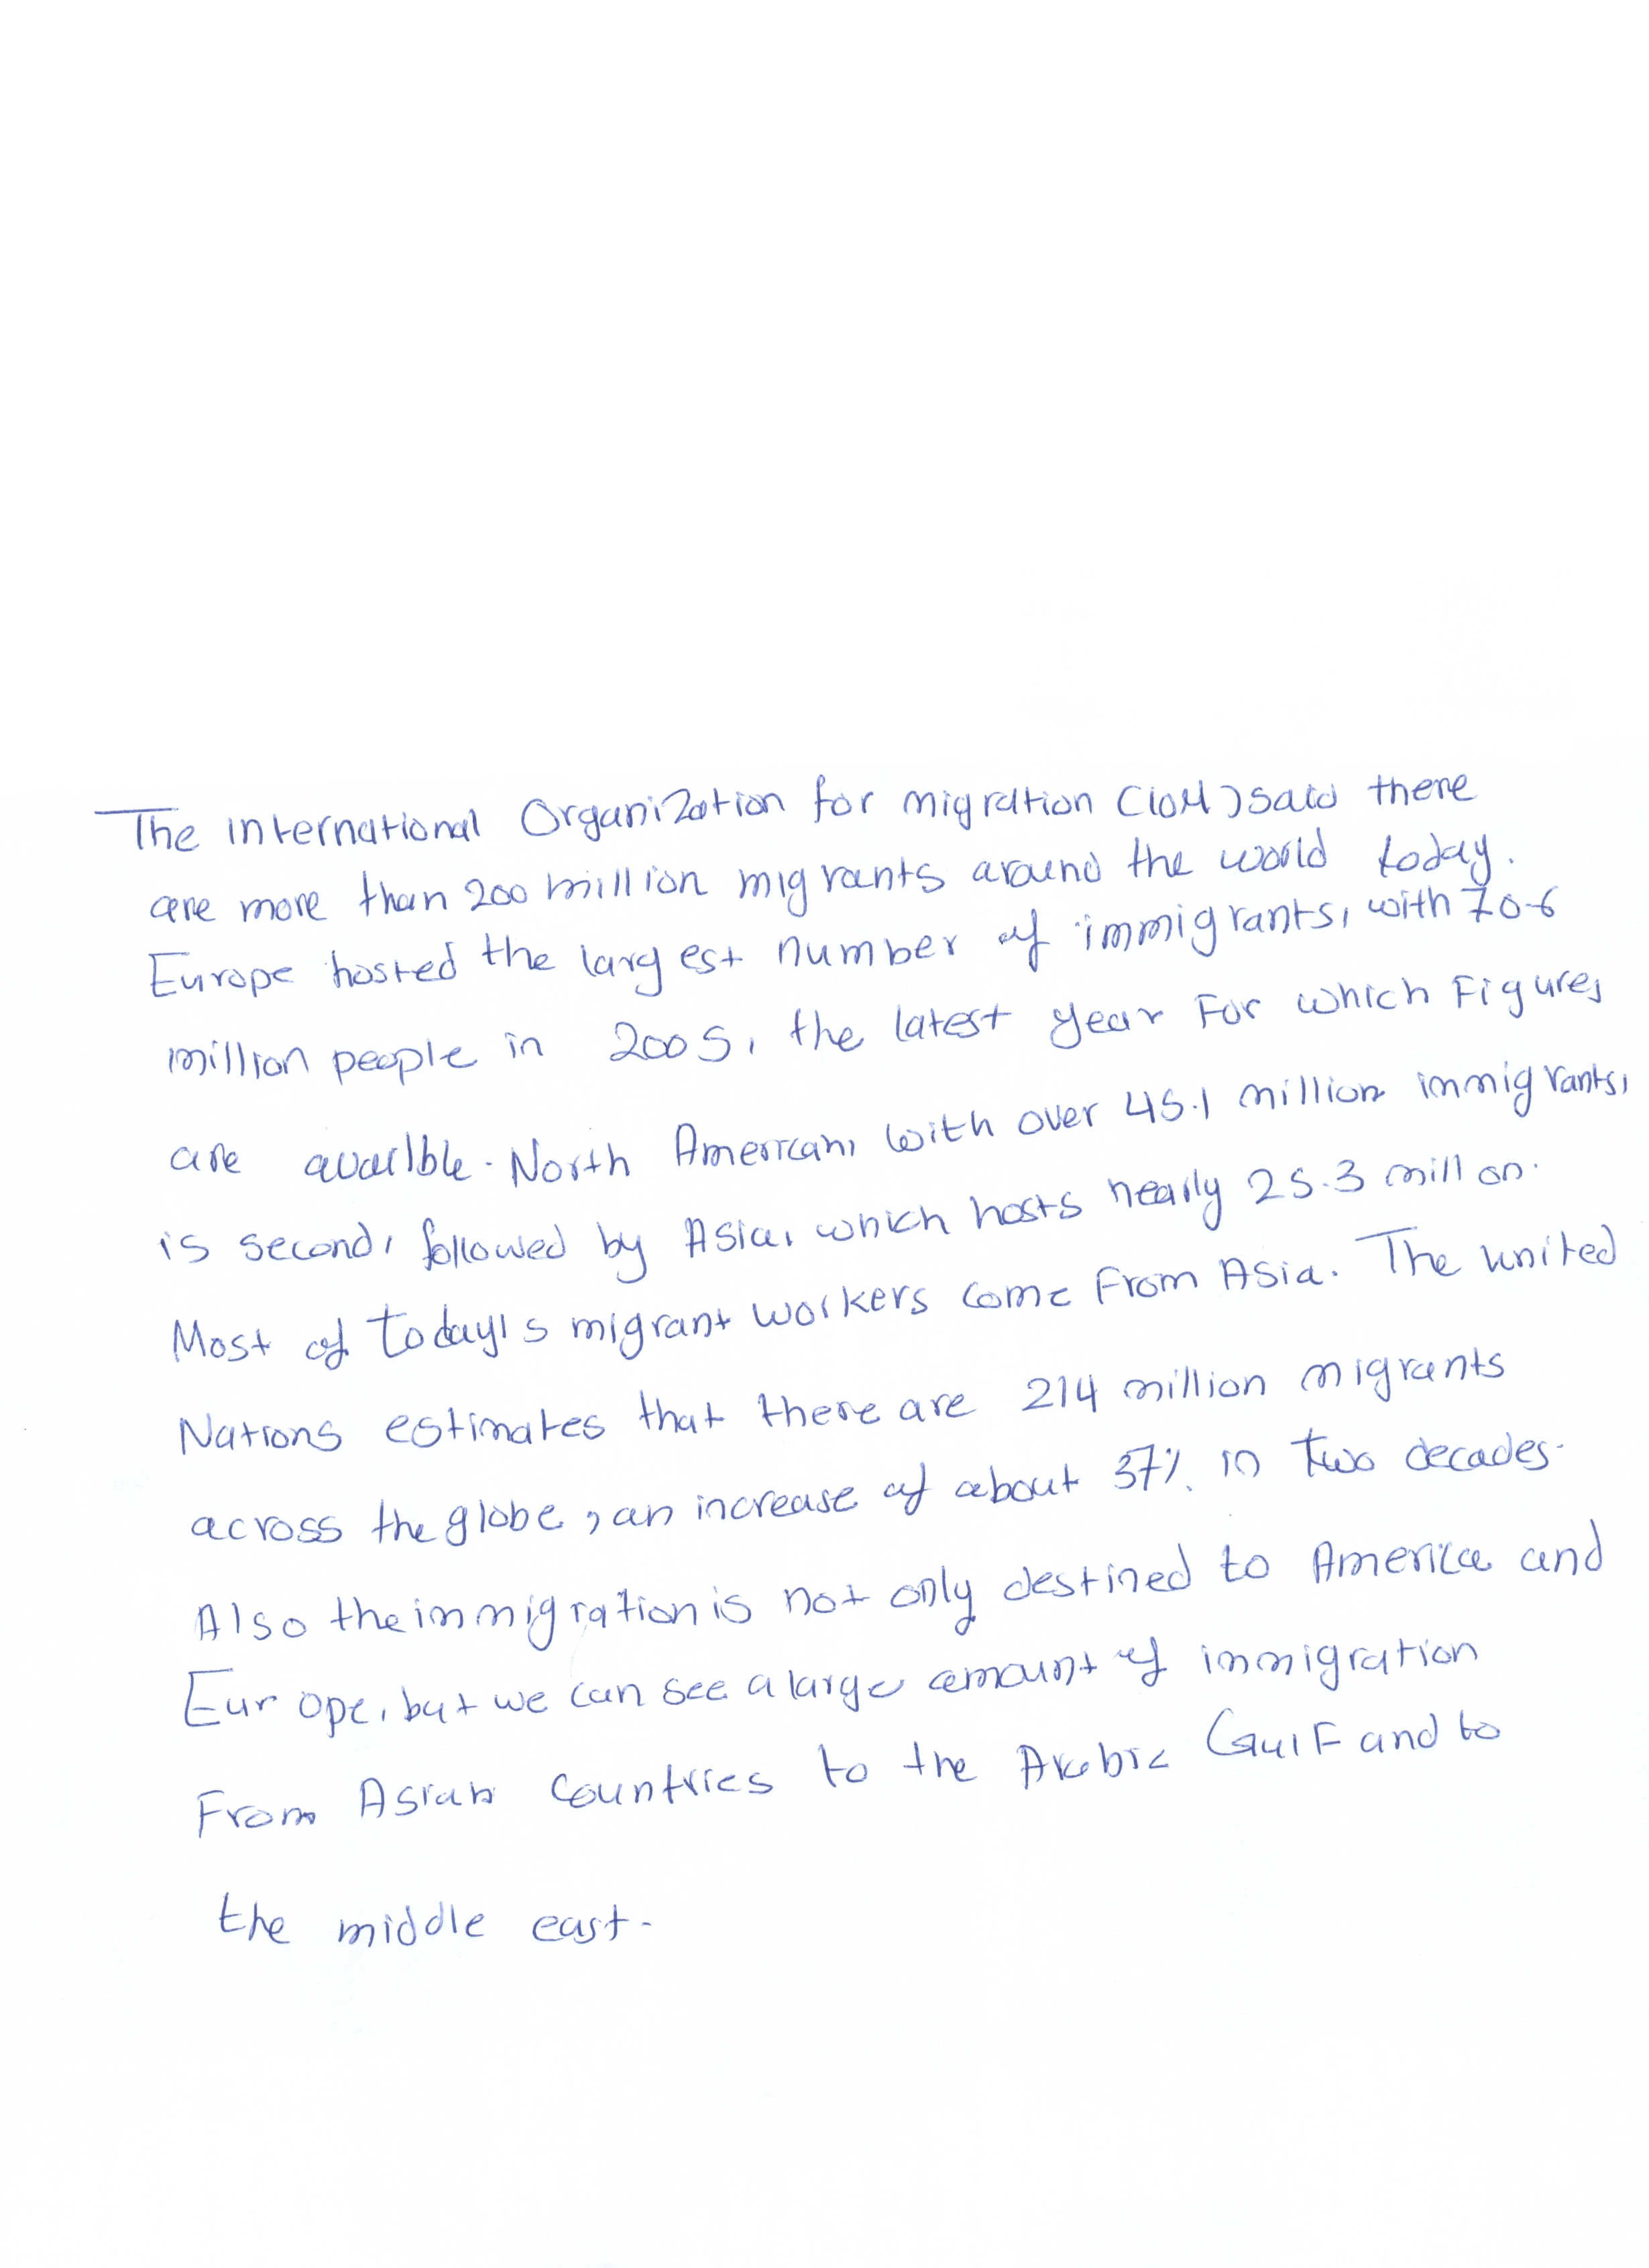 The international Organization for migration (IOM) said there
are more than 200 million migrants around the world today.
Europe hosted the largest number of immigrants, with 70.6
million people in 2005, the latest year For which Figures
are availble. North American, with over 45.1 million immigrants,
is second, followed by Asia, which hosts nearly 25.3 millon.
Most of today's migrant workers come From Asia. The united
Nations estimates that there are 214 million migrants
across the globe, an increase of about 37% in two decades.
Also the immigration is not only destined to America and
Europe, but we can see a large amount of immigration
From Asian Countries to the Arabic Gulf and to
the middle east.